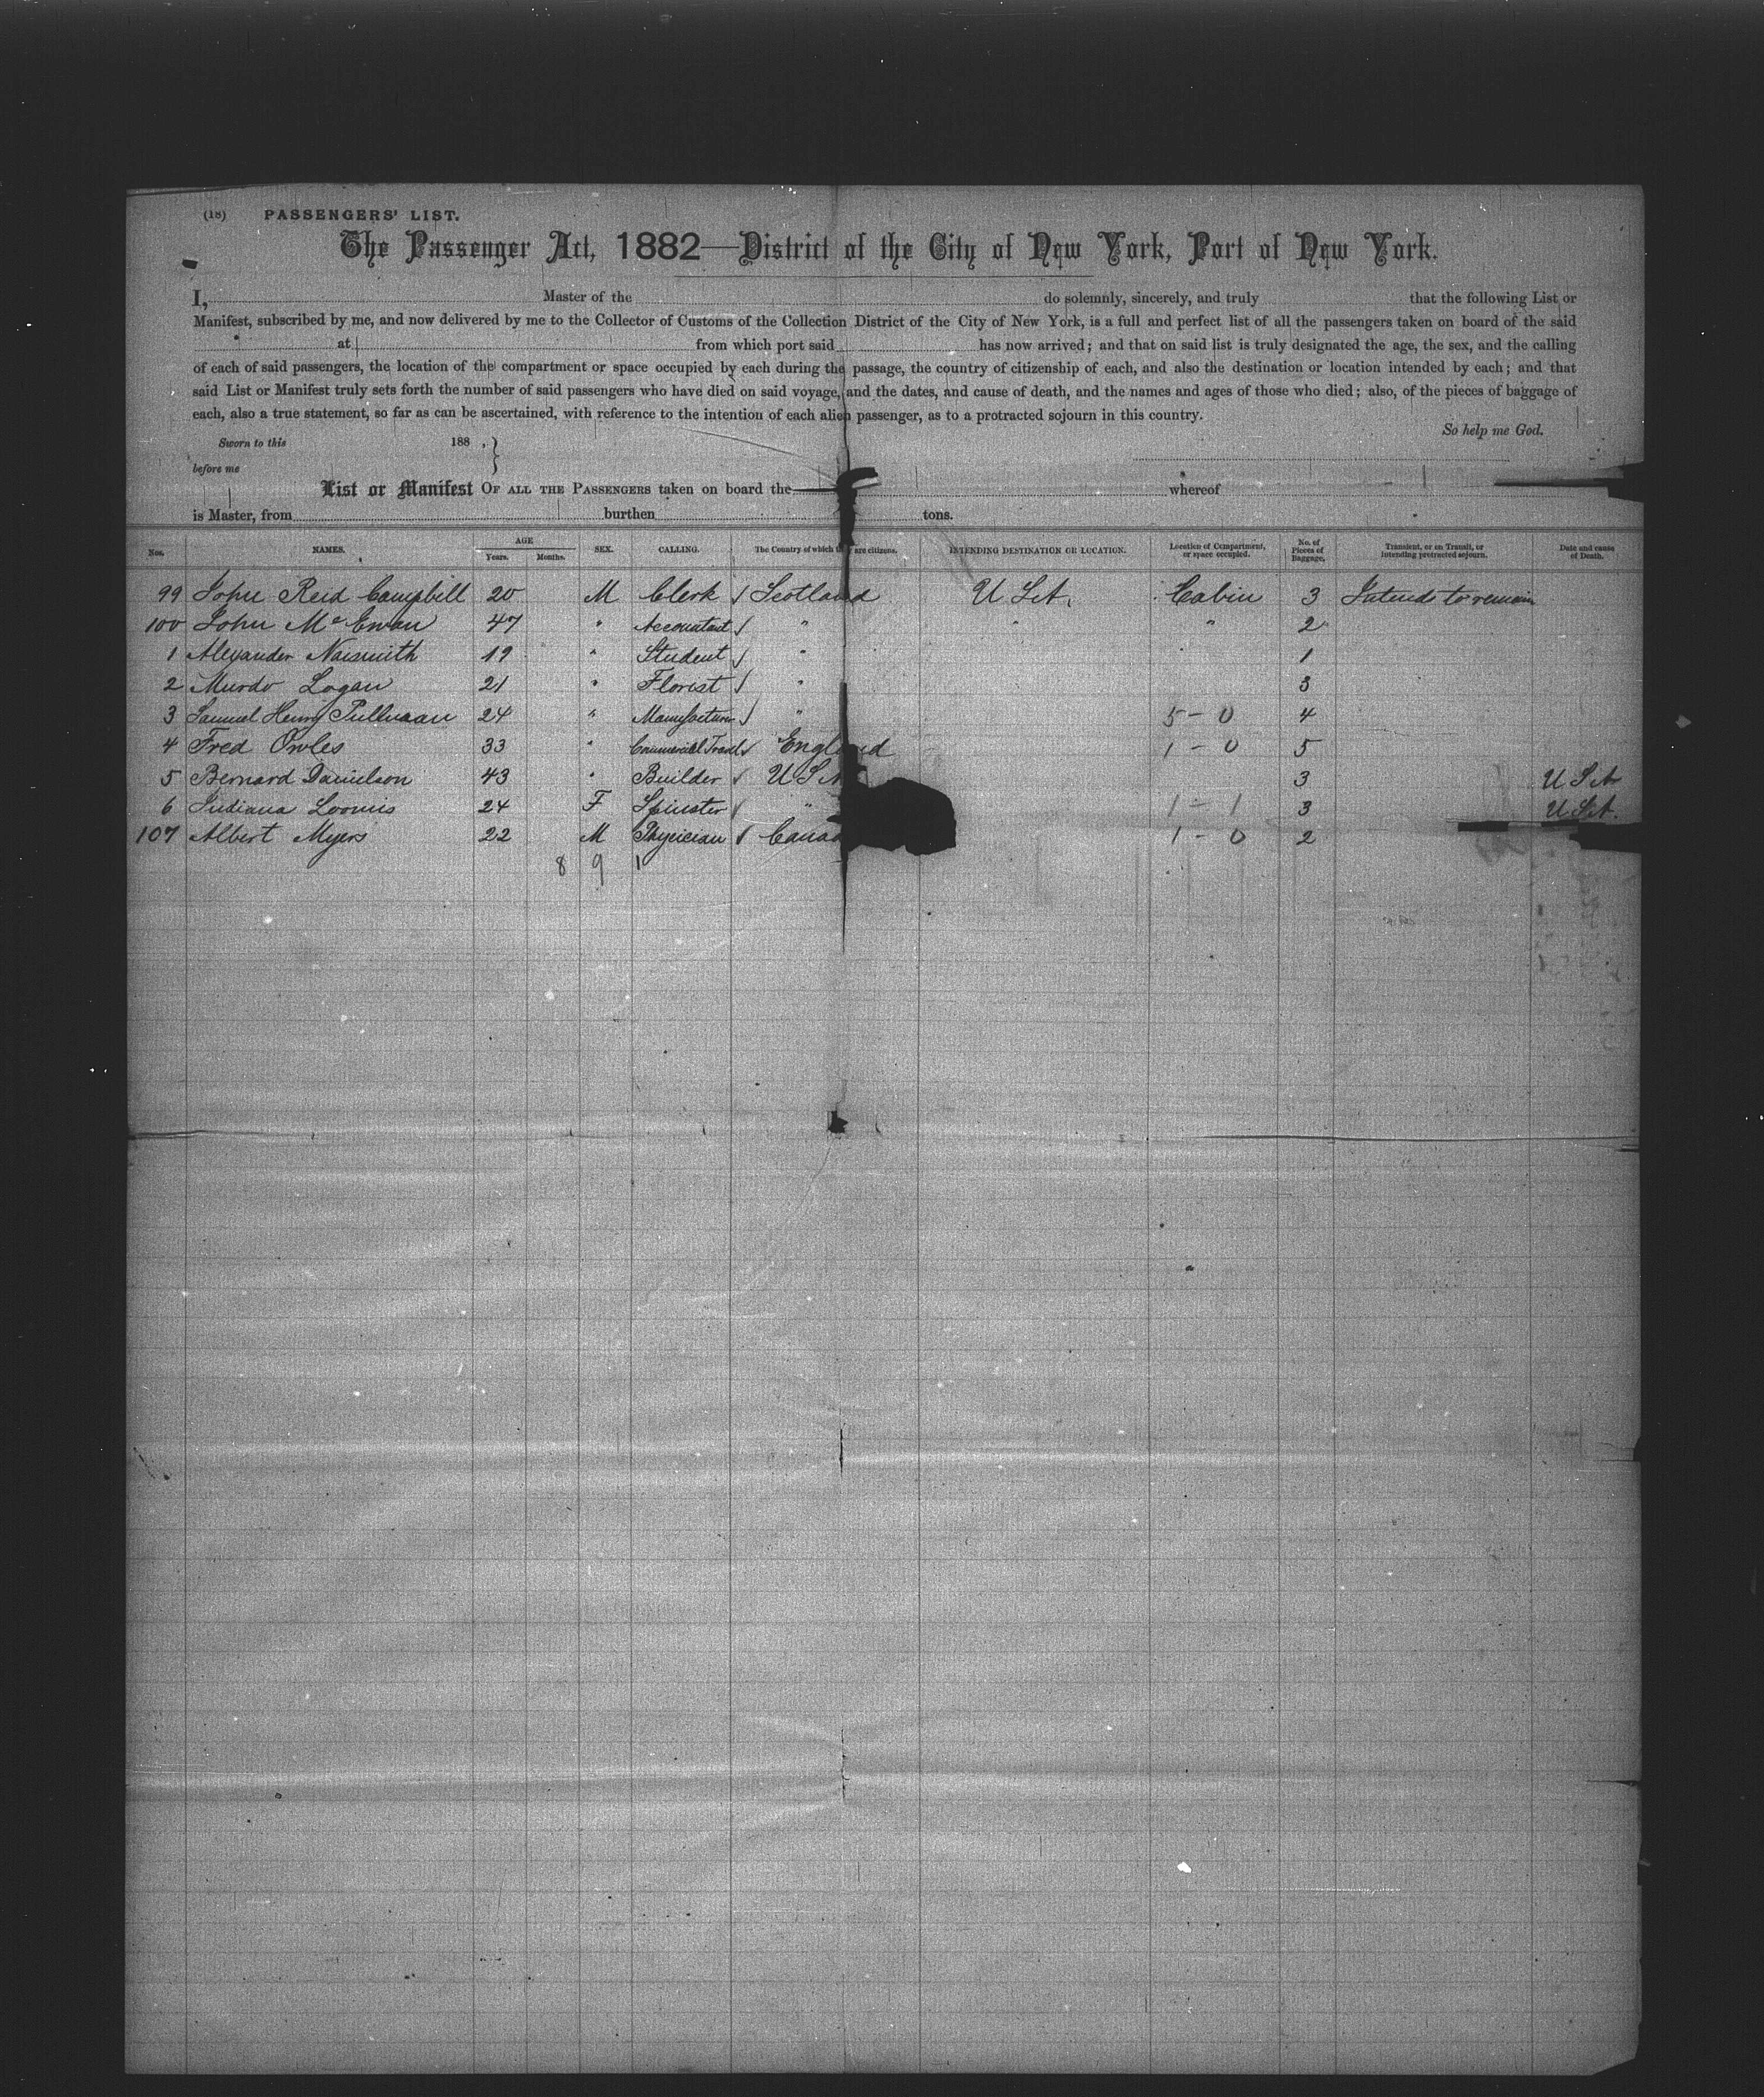 (18) PASSENGERS' LIST.
The Passenger Act, 1882—District of the City of New York, Port of New York.
I, Master of the do solemnly, sincerely, and truly that the following List or
Manifest, subscribed by me, and now delivered by me to the Collector of Customs of the Collection District of the City of New York, is a full and perfect list of all the passengers taken on board of the said
at from which port said has now arrived; and that on said list is truly designated the age, the sex, and the calling
of each of said passengers, the location of the compartment or space occupied by each during the passage, the country of citizenship of each, and also the destination or location intended by each; and that
said List or Manifest truly sets forth the number of said passengers who have died on said voyage, and the dates, and cause of death, and the names and ages of those who died; also, of the pieces of baggage of
each, also a true statement, so far as can be ascertained, with reference to the intention of each alien passenger, as to a protracted sojourn in this country.
So help me God.
Sworn to this 188 ,
before me
List or Manifest OF ALL THE PASSENGERS taken on board the whereof
is Master, from burthen tons.
Nos. NAMES. AGE Years. Months. SEX. CALLING. The Country of which they are citizens. INTENDING DESTINATION OR LOCATION. Location of Compartment, or space occupied. No. of Pieces of Baggage. Transient, or on Transit, or intending protracted sojourn. Date and cause of Death.
99 John Reid Campbell 20 M Clerk / Scotland U S A. Cabin 3 Intends to remain
100 John McEwan 47 " Accountant / " " " 2
1 Alexander Naismith 19 " Student / " 1
2 Murdo Logan 21 " Florist / " 3
3 Samuel Henry Pullman 24 " Manufacturer / " 5 - 0 4
4 Fred Owles 33 " Commercial Travl / England 1 - 0 5
5 Bernard Danielson 43 " Builder / U S A 3 U S A
6 Indiana Loomis 24 F Spinster / " 1 - 1 3 U S A.
107 Albert Myers 22 M Physician / Canad 1 - 0 2
8 9 1